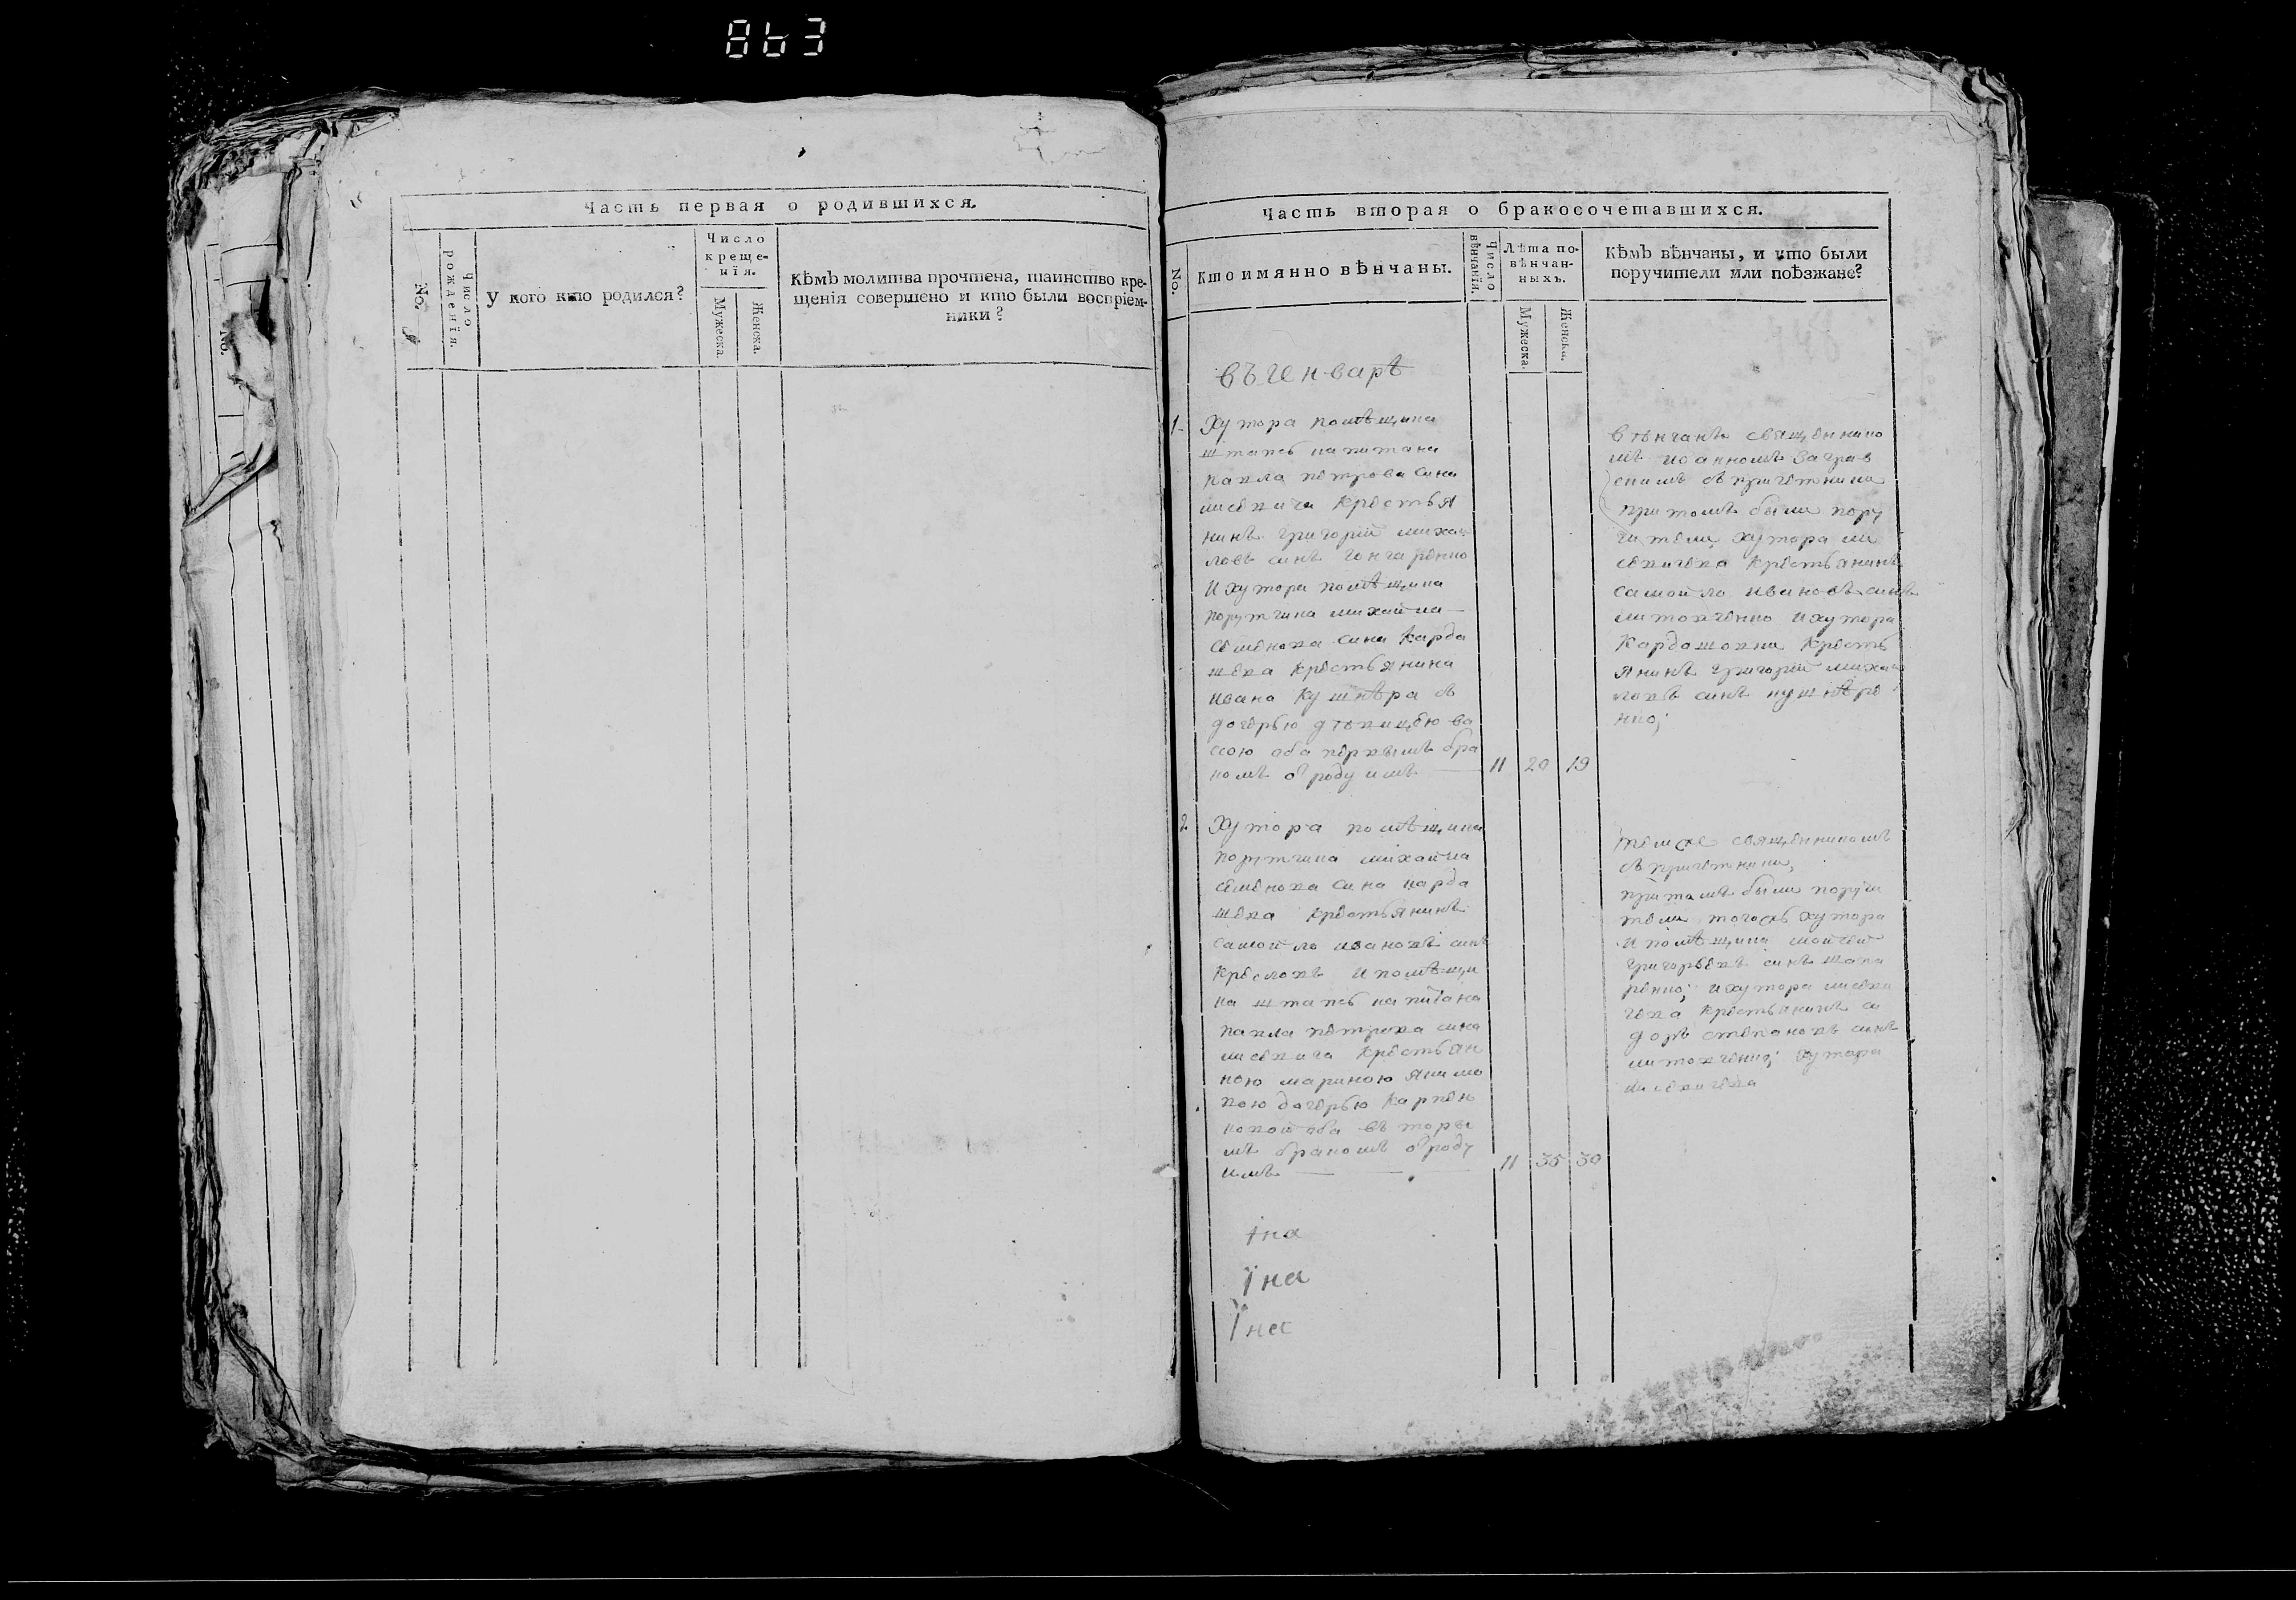 863
Часть первая о родившихся.
No.
Число рожденїя.
У кого кто родился?
Число
креще-
нїя.
Мужеска.
Женска.
Кѣмъ молитва прочтена, таинство кре-
щенїя совершено и кто были воспрїем-
ники?
No.
Часть вторая о бракосочетавшихся.
No.
Кто имянно вѣнчаны.
Число вѣнчанїя.
Лѣта по-
вѣнчан-
ныхъ.
Мужеска.
Женска.
Кѣмъ вѣнчаны, и кто были
поручители или поѣзжане?
въ генварѣ
1
Хутора помѣщика
штапсъ капитана
павла петрова сина
мисевича крестья
нинъ григорій михай
ловъ синъ гончаренко
и хутора помѣщика
порутчика михайла
семенова сина карда
шева крестьянина
ивана кушнѣра съ
дочерью дѣвицею ва
сою оба первымъ бра
комъ от роду имъ
11 20 19
вѣнчанъ священнико
мъ иоанномъ
съ причетники
притомъ были пору
чители хутора ми
севичева крестьянинъ
самойло ивановъ синъ
литовченко и хутора
кардашовки кресть
янинъ григорий михай
ловъ синъ кушнѣре
нко;
2
Хутора помѣщика
порутчика михайла
семенова сина карда
шева крестьянинъ
самойло ивановъ синъ
кресловъ и помѣщи
ка штапсъ капитана
павла петрова сина
мисевича крестьян
кою мариною якимо
вою дочерью карпен
ковой оба въ торы
мъ бракомъ от роду
имъ
11 35 30
темже священникомъ
съ причетники,
притомъ были поручи
тели тогожъ хутора
и помѣщика
григорьевъ синъ шапа
ренко; и хутора мисеви
чева крестьянинъ си
доръ степановъ синъ
литовченко; хутора
мисевичева
їна
їна
їна